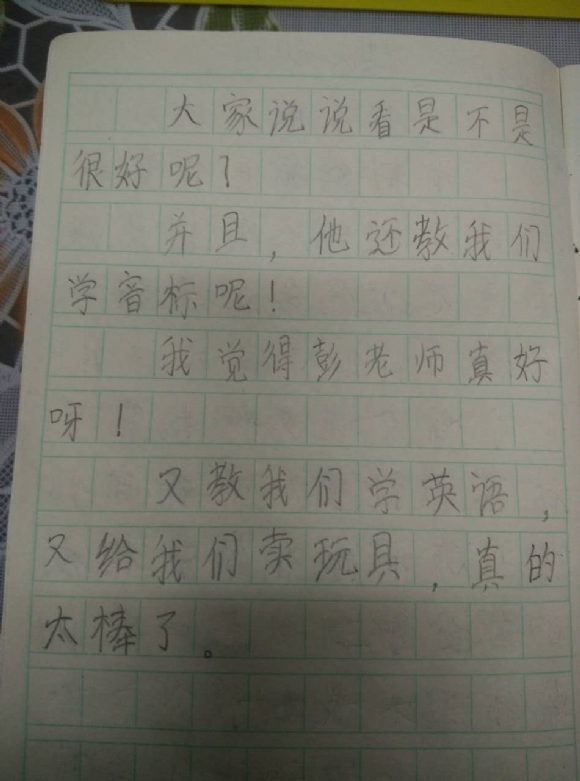 大家说说看是不是
很好呢？
并且，他还教我们
学音标呢！
我觉得彭老师真好
呀！
又教我们学英语，
又给我们卖玩具，真的
太棒了。